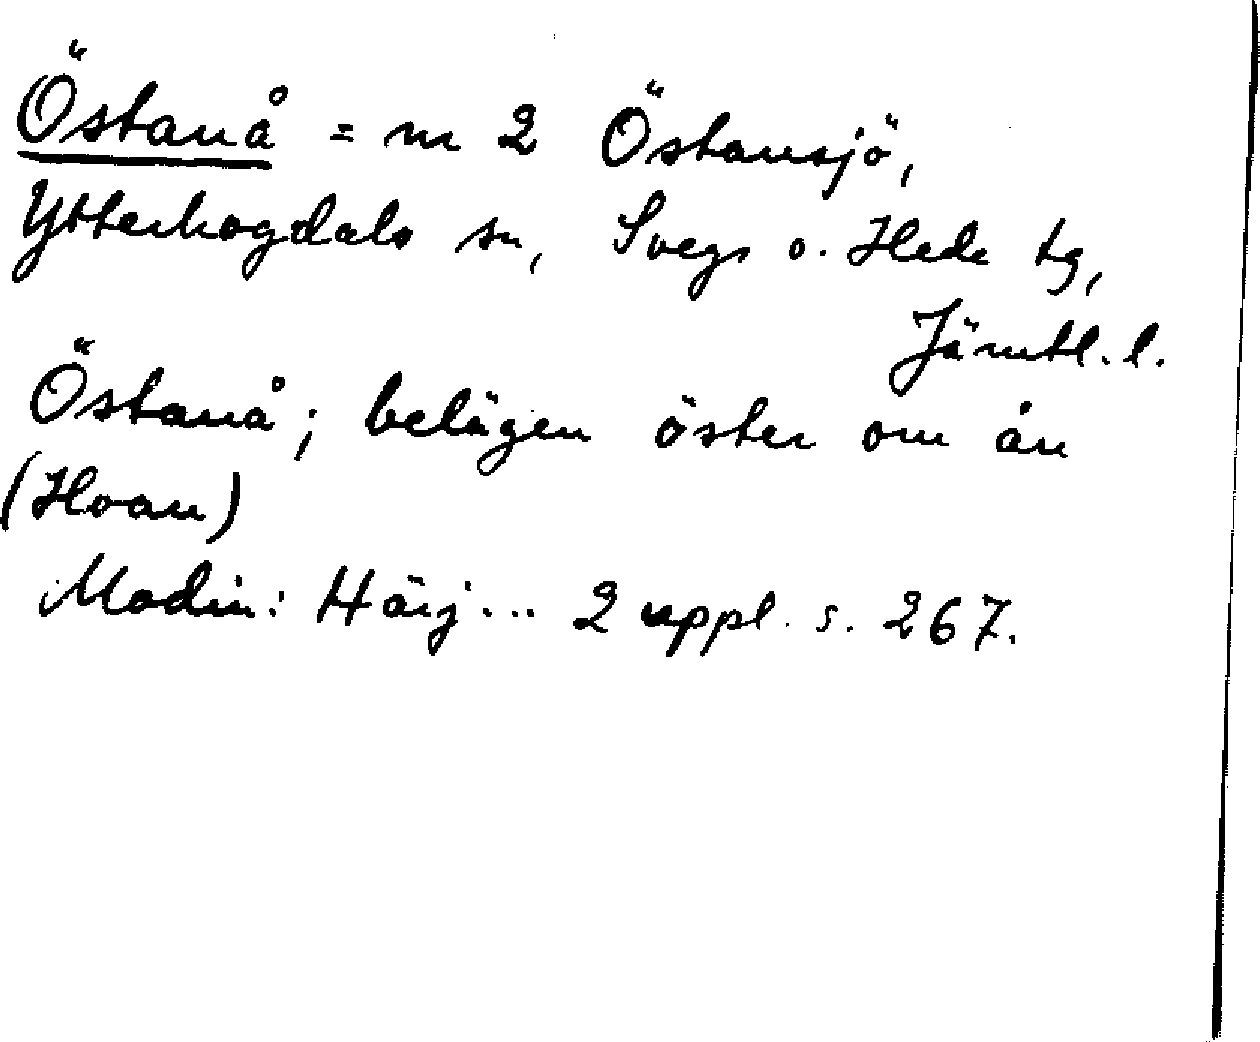 Östanå = nr 2 Östansjö,
Ytterhogdals sn, Svegs o. Hede tg,
Jämtl. l.
Östanå; belägen öster om ån
(Hoan)
Modin: Härj... 2 uppl. s. 267.